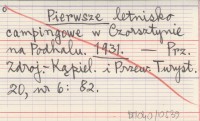 Pierwsze letnisko
campingowe w Czorsztynie
na Podhalu. 1931. — Prz.
Zdroj. Kąpiel. i Przew. Turyst.
20, nr 6 : 82.